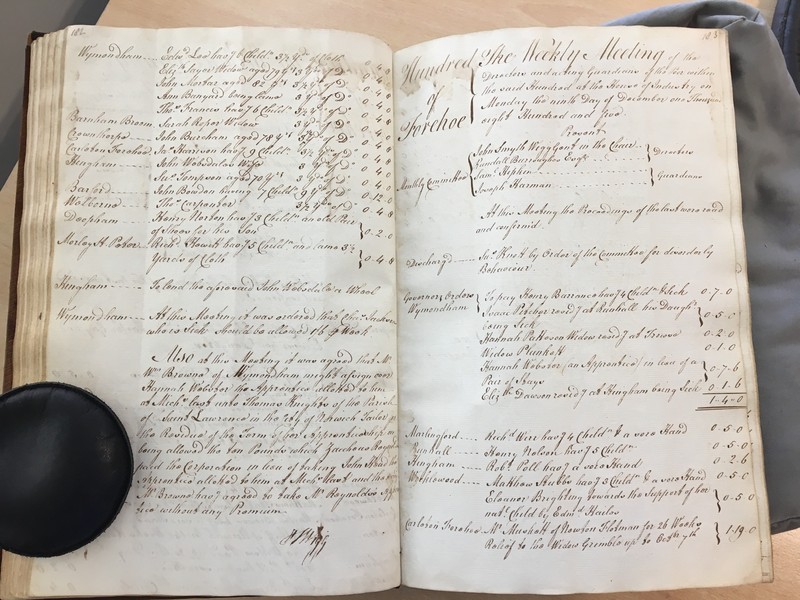 182
Wymondham Edwd Loo havg 6 Childn 3½ Yds of Cloth 0 4 8
Elizth Sayer Widow aged 79 Yrs 3½ Yds of Do 0 4 8
John Mortar aged 82 Yrs 3½ Yds of Do 0 4 8
Ann Barnard being lame 3 Yds of Do 0 4 0
Thos Francis havg 6 Childn 3½ Yds of Do 0 4 8
Barnham Broom Sarah Roper Widow 3 Yds of Do 0 4 0
Crownthorpe John Burcham aged 78 Yrs 3½ Yds of Do 0 4 8
Carleton Forehoe Jas Harrison havg 9 Childn 3½ Yds of Do 0 4 8
Hingham John Wabisdales Wife 3 Yds of Do
Jas Tompson aged 70 Yrs 3½ Yds of Do 0 4 8
Barford John Bowden having 7 Childn 9 Yds of Do 0 12 0
Welborne Thos Carpenter 3½ Yds of Do 0 4 8
Deopham Henry Norton havg 3 Childn an old Pair
of Shoes for his Son 0 2 0
Morley St Peter Richd Howitt havg 5 Childn and lame 3½
Yards of Cloth 0 4 8
Hingham To lend the aforesaid John Wabisdale a Wheel
Wymondham At this Meeting it was ordered that Chrisr
who is Sick should be allowed 1s 6d Week
Also at this Meeting it was agreed that Mr
Wm Browne of Wymondham might assign over
Hannah Webster the Apprentice allotted to him
at Michs last unto Thomas Knights of the Parish
of Saint Lawrence in the City of Norwich Tailor for
the Residue of the Term of her Apprenticeship on
being allowed the ten Pounds which Zacheus Reynolds
paid the Corporation in lieu of taking John the
Apprentice allotted to him at Michs last and the sd
Mr Browne havg agreed to take Mr Reynolds's Appren
tice without any Premium
Hundred
of
Forehoe
The Weekly Meeting of the
Directors and acting Guardians of the Poor within
the said Hundred at the House of Industry on
Monday the ninth Day of December one Thousand
eight Hundred and five
Present
Monthly Committee
John Smyth Wigg Gent in the Chair
Randall Burroughes Esqr
Directors
Saml Pipkin
Joseph Harman
Guardians
At this Meeting the Proceedings of the last were read
and confirmed.
Discharg'd Jas Knott by Order of the Committee for disorderly
Behaviour.
Governors Orders
Wymondham
To pay Henry Barrance havg 4 Childn & Sick 0-7-0
Isaac Pitcher resdg at Runhall his Daughr
being Sick 0-5-0
Hannah Patteson Widow resdg at Trowse 0-2-0
Widow Plunkett 0-1-0
Hannah Webster (an Apprentice) in lieu of a
Pair of Stays 0-7-6
Elizth Dawson resdg at Hingham being Sick 0-1-6
1-4-0
Marlingford Richd Weir havg 4 Childn & a sore Hand 0-5-0
Runhall Henry Nelson havg 5 Childn 0-5-0
Hingham Robt Pull havg a sore Hand 0-2-6
Wicklewood Matthew Stubbs havg 5 Childn & a sore Hand 0-5-0
Eleanor Brighting towards the Support of her
natl Child by Edmd Harlos 0-5-0
Carleton Forehoe Mr Mushett of Newton Flotman for 26 Weeks
Relief to the Widow Gremble up to Octbr 7th 1-19-0